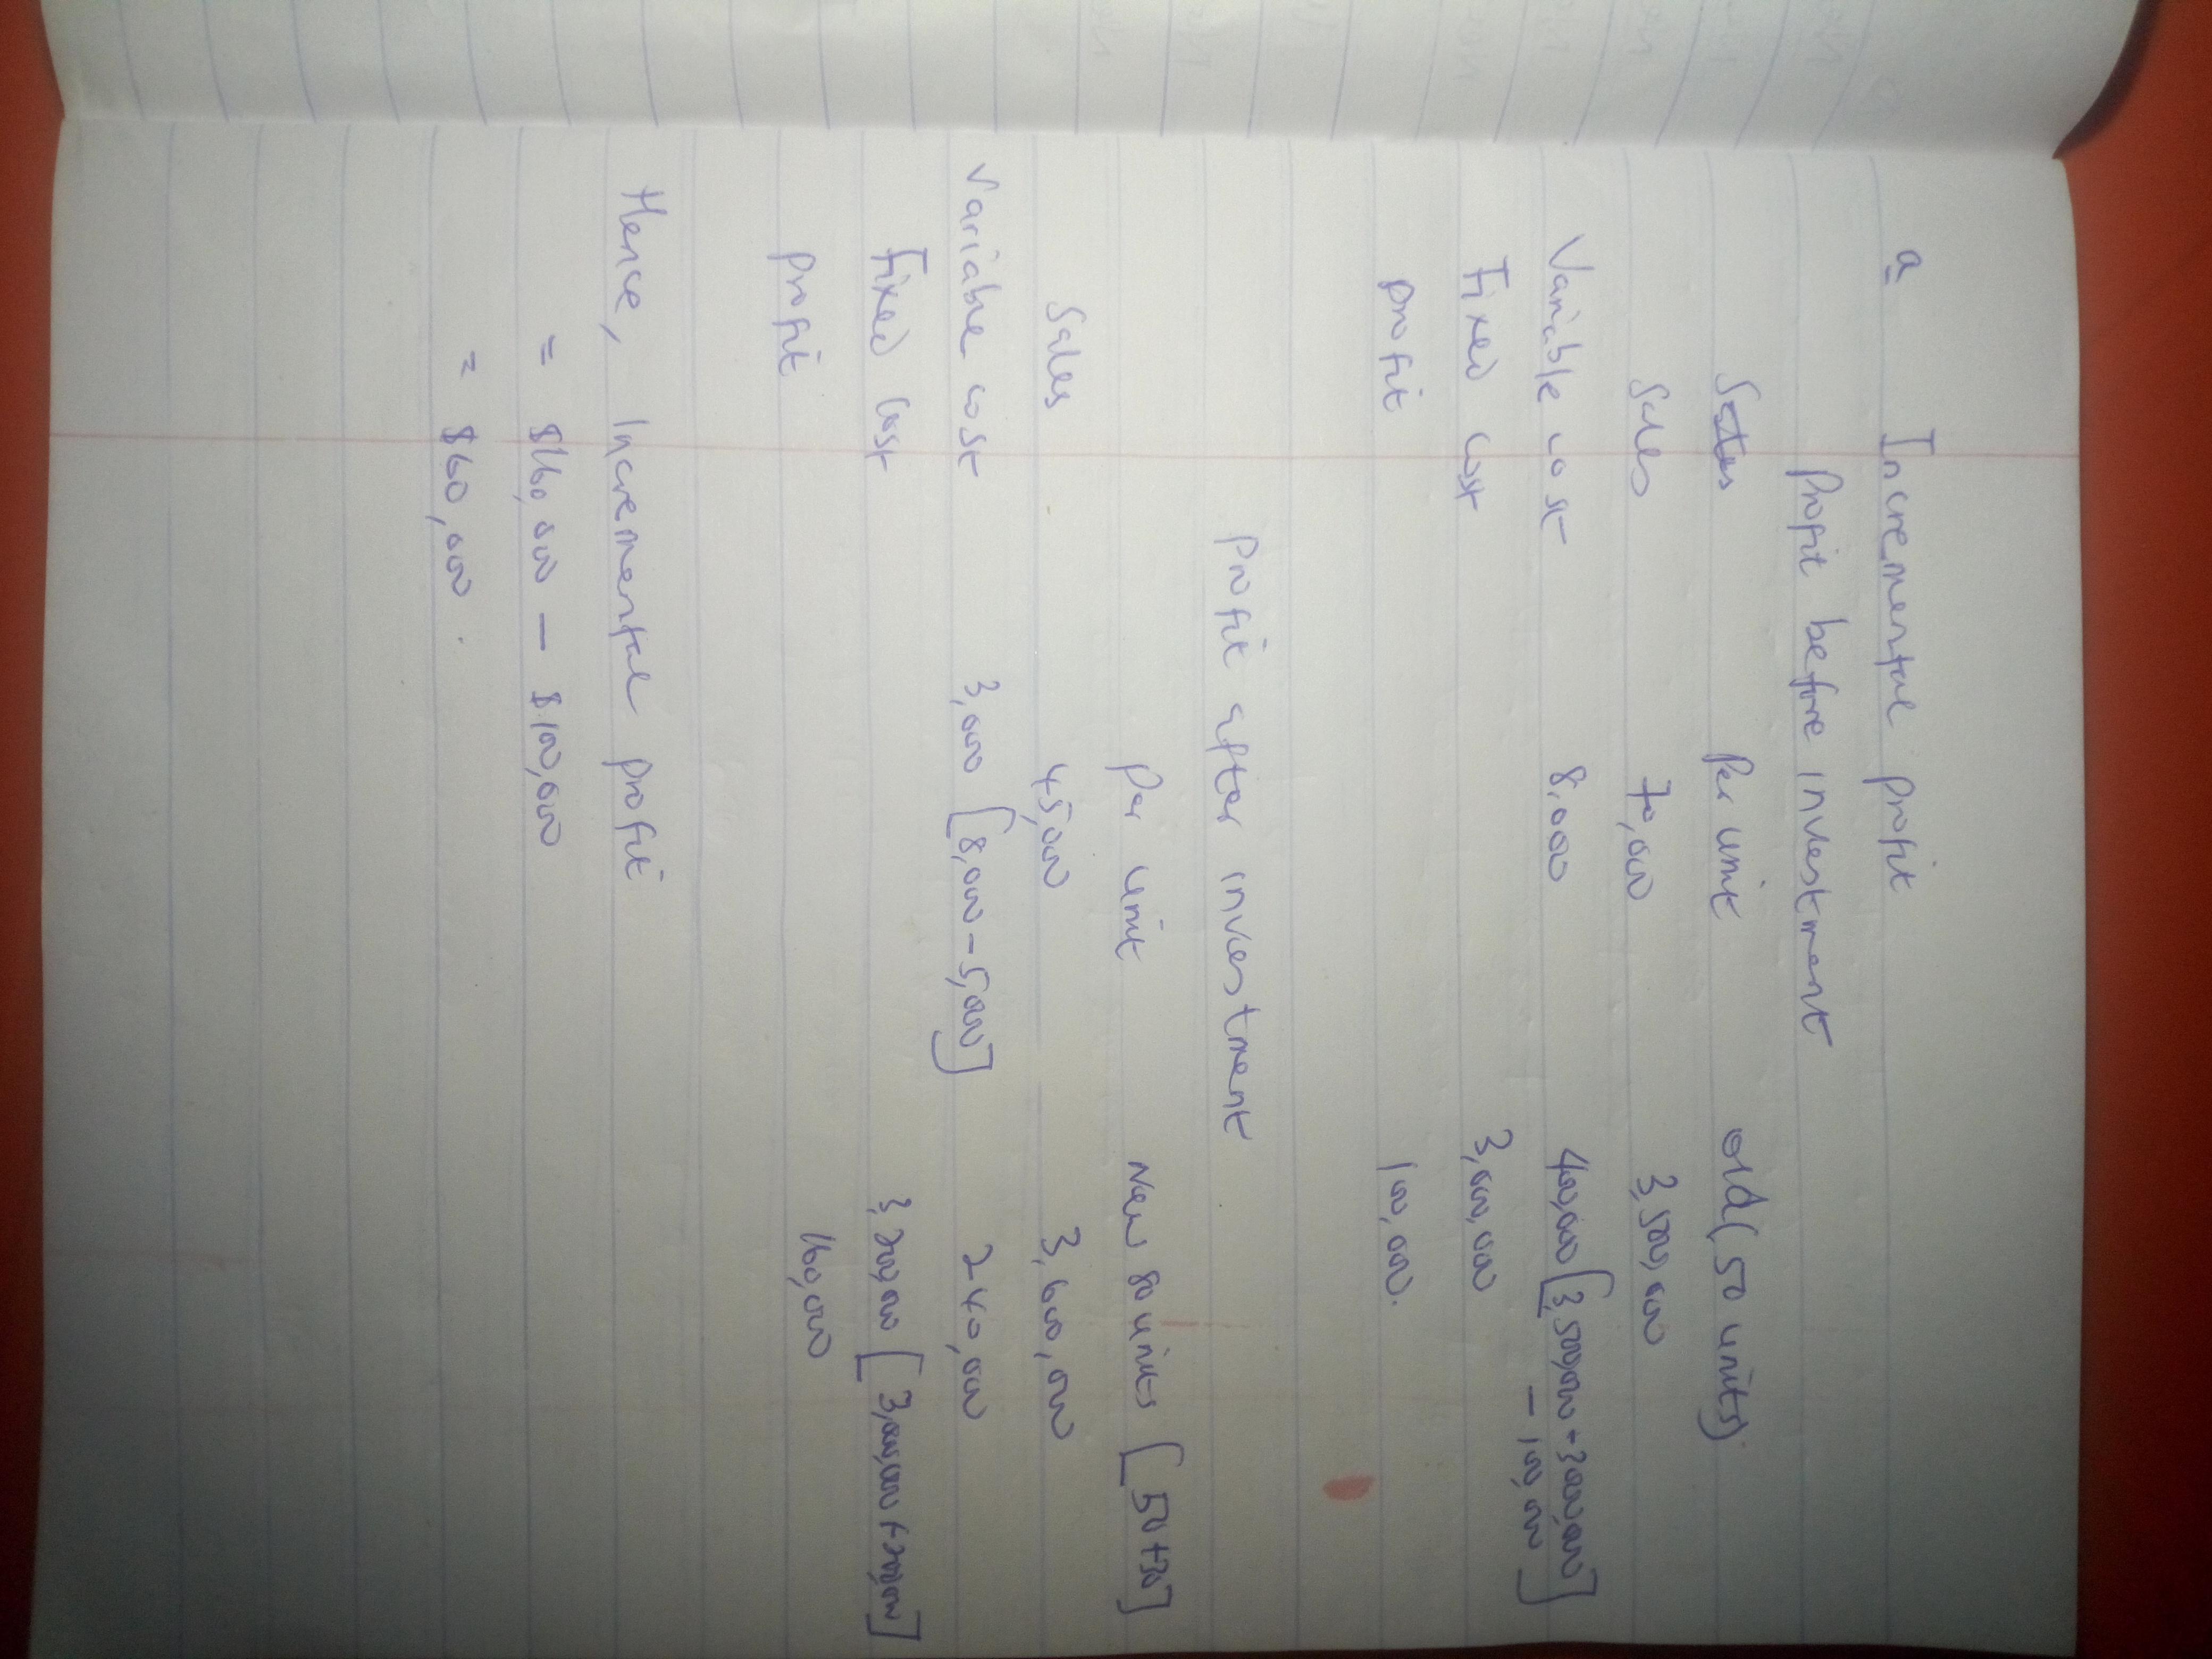 a Incremental profit
Profit before investment
Sales Per unit old (50 units)
Sales 70,000 3,500,000
Variable cost 8,000 400,000 [3,500,000-3000,000
- 100,000]
Fixed cost 3,000,000
profit 100,000.
Profit after investment
Per unit New 80 units [50+30]
Sales 45,000 3,600,000
Variable cost 3,000 [8,000-5,000] 240,000
Fixed cost 3,200,000 [3,000,000+200,000]
profit 160,000
Hence, Incremental profit
= $160,000 - $100,000
= $60,000.